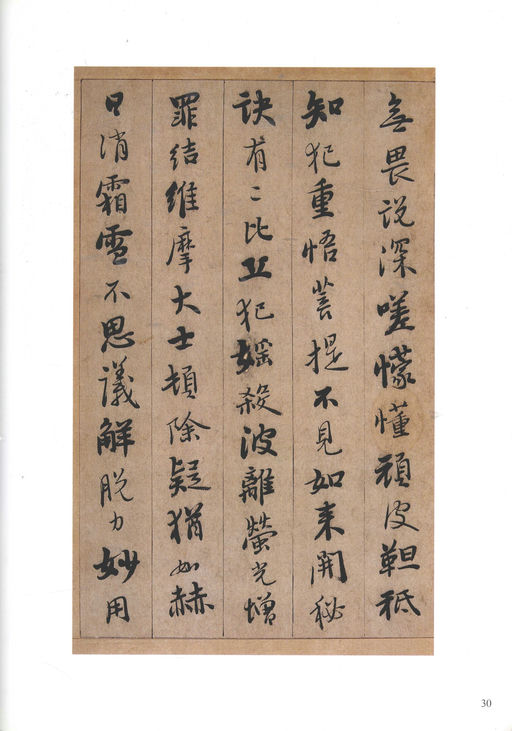 無畏说深嗟懞懂頑皮靼秖
知犯重悟菩提不見如来開秘
訣有二比丘犯婬殺波離螢光增
罪結維摩大士頓除疑猶如赫
日消霜雪不思議解脱力妙用
30